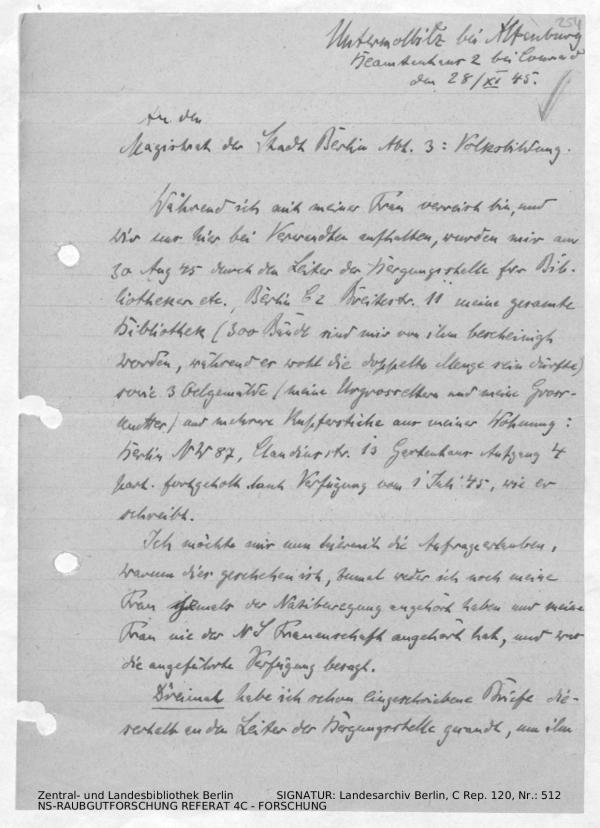 254
Untermolbitz bei Altenburg
Beamtenhaus 2 bei Conrad
den 28/XI 45.
An den
Magistrat der Stadt Berlin Abt. 3: Volksbildung.
Während ich mit meiner Frau verreist bin, und
wir uns hier bei Verwandten aufhalten, wurden mir am
30 Aug 45 durch den Leiter der Bergungsstelle für Bib-
liotheken etc., Berlin C 2 Breitestr. 11 meine gesamte
Bibliothek (300 Bände sind mir von ihm bescheinigt
worden, während er wohl die doppelte Menge sein dürfte)
sowie 3 Oelgemälde (meine Urgrosseltern und meine Gross-
mutter) und mehrere Kupferstiche aus meiner Wohnung:
Berlin NW 87, Claudiusstr. 13 Gartenhaus Aufgang 4
part. fortgeholt laut Verfügung vom 1 Juli 45, wie er
schreibt.
Ich möchte mir nun hiermit die Anfrage erlauben,
warum dies geschehen ist, zumal weder ich noch meine
Frau jemals der Nazibewegung angehört haben und meine
Frau nie der NS Frauenschaft angehört hat, und was
die angeführte Verfügung besagt.
Dreimal habe ich schon eingeschriebene Briefe die-
serhalb an den Leiter der Bergungsstelle gesandt, um ihn
Zentral- und Landesbibliothek Berlin SIGNATUR: Landesarchiv Berlin, C Rep. 120, Nr.: 512
NS-RAUBGUTFORSCHUNG REFERAT 4C - FORSCHUNG